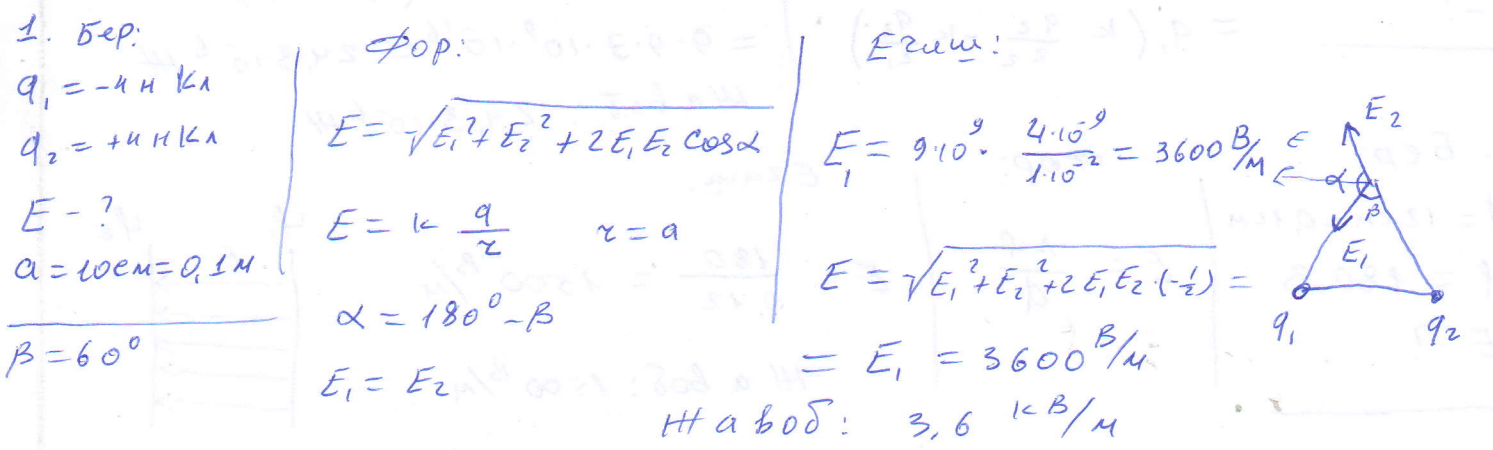 1. Бер:
q₁ = -4 н Кл
q₂ = +4 н Кл
E - ?
a = 10 см = 0,1 м
β = 60°
Фор:
E = √E₁² + E₂² + 2E₁E₂ cosα
E = k q/r r = a
α = 180° - β
E₁ = E₂
Ечиш:
E₁ = 9·10⁹ · 4·10⁻⁹/1·10⁻² = 3600 В/м
E = √E₁² + E₂² + 2E₁E₂·(-½) =
= E₁ = 3600 В/м
E₂
E
α
β
E₁
q₁ q₂
Жавоб: 3,6 кВ/м